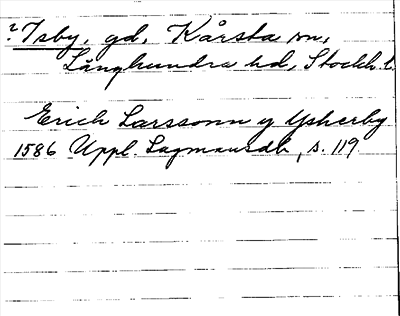 ? Isby, gd, Kårsta sn,
Långhundra hd, Stockh. l.
Erich Larssonn y Ysherby
1586 Uppl. Lagmansdb, s. 119